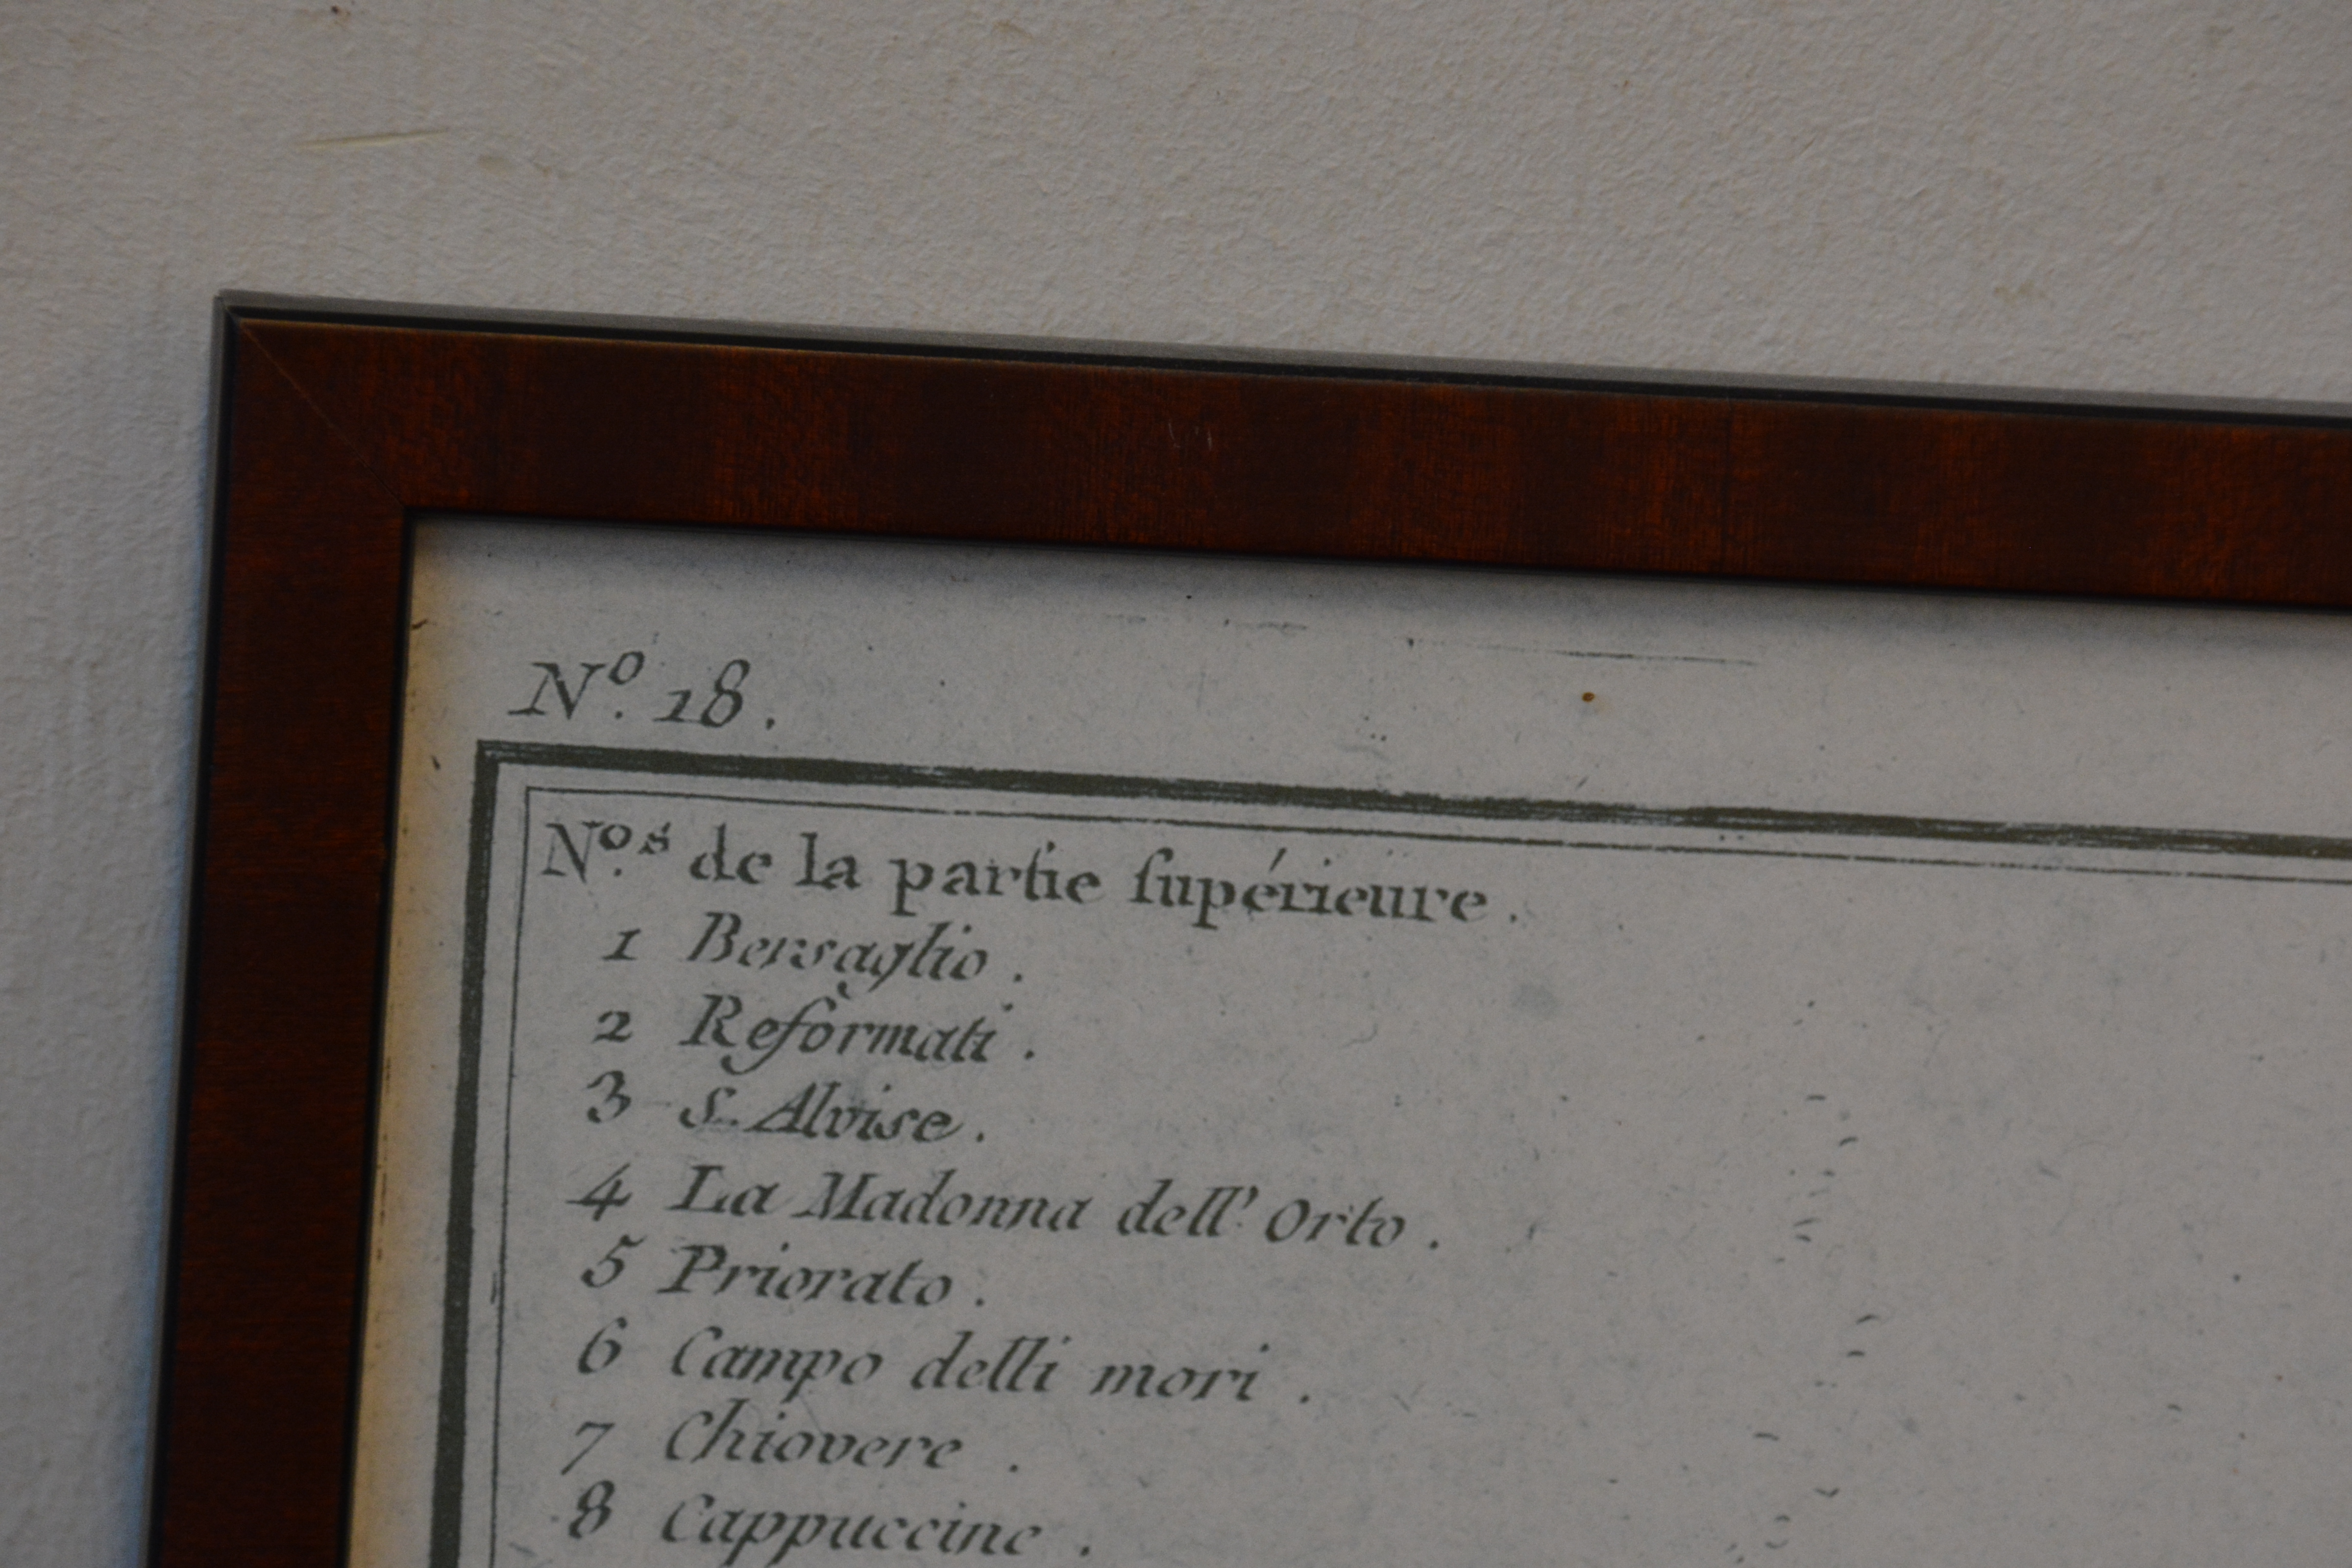 Nº. 18.
Nº.ˢ de la partie ſupérieure.
1 Bersaglio.
2 Reformati.
3 S. Alvise.
4 La Madonna dell' Orto.
5 Priorato.
6 Campo delli mori.
7 Chiovere.
8 Cappuccine.